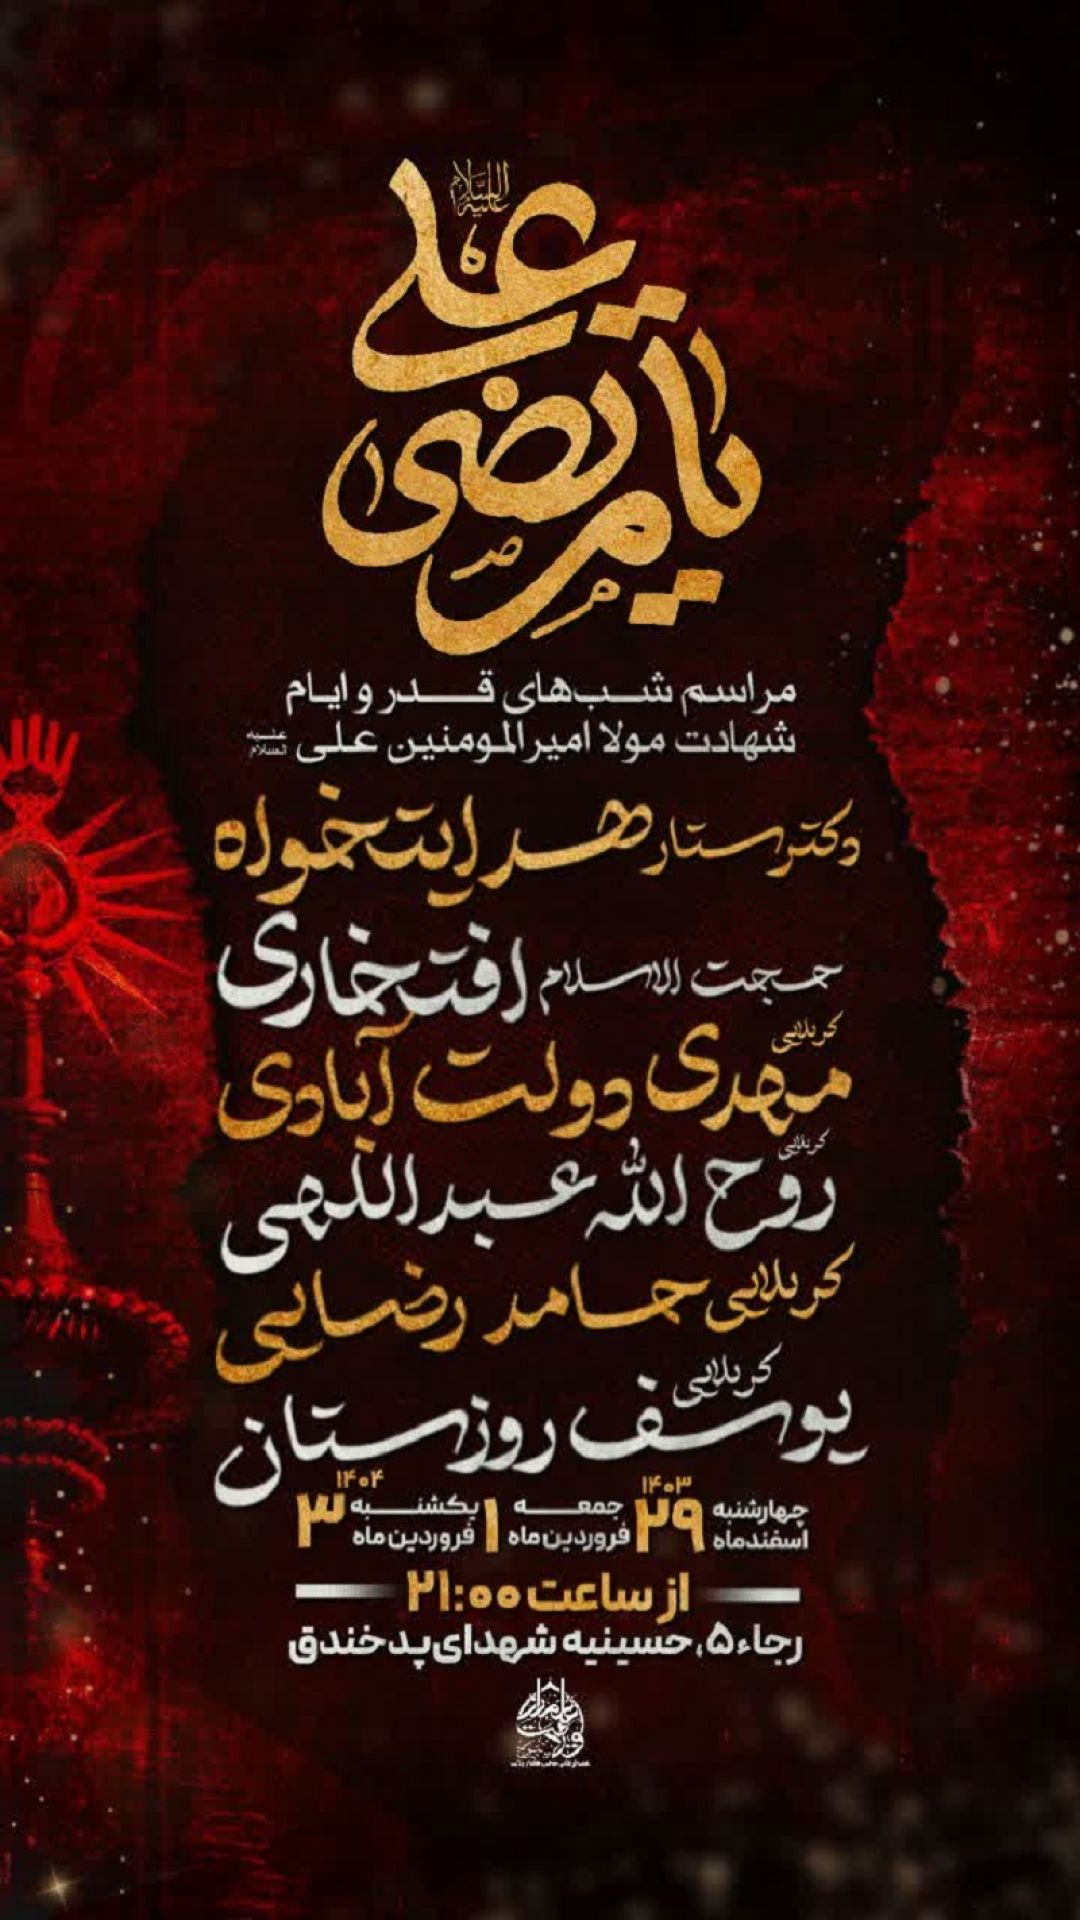 یا مرتضی علی علیه السلام
مراسم شب‌های قدر و ایام
شهادت مولا امیرالمومنین علی علیه السلام
دکتر ستار هدایتخواه
حجت الاسلام افتخاری
کربلایی مهدی دولت آبادی
کربلایی روح الله عبداللهی
کربلایی حامد رضایی
کربلایی یوسف روزستان
چهارشنبه ۲۹ اسفندماه ۱۴۰۳
جمعه ۱ فروردین ماه
یکشنبه ۳ فروردین ماه ۱۴۰۴
از ساعت ۲۱:۰۰
رجاء ۵، حسینیه شهدای پد خندق